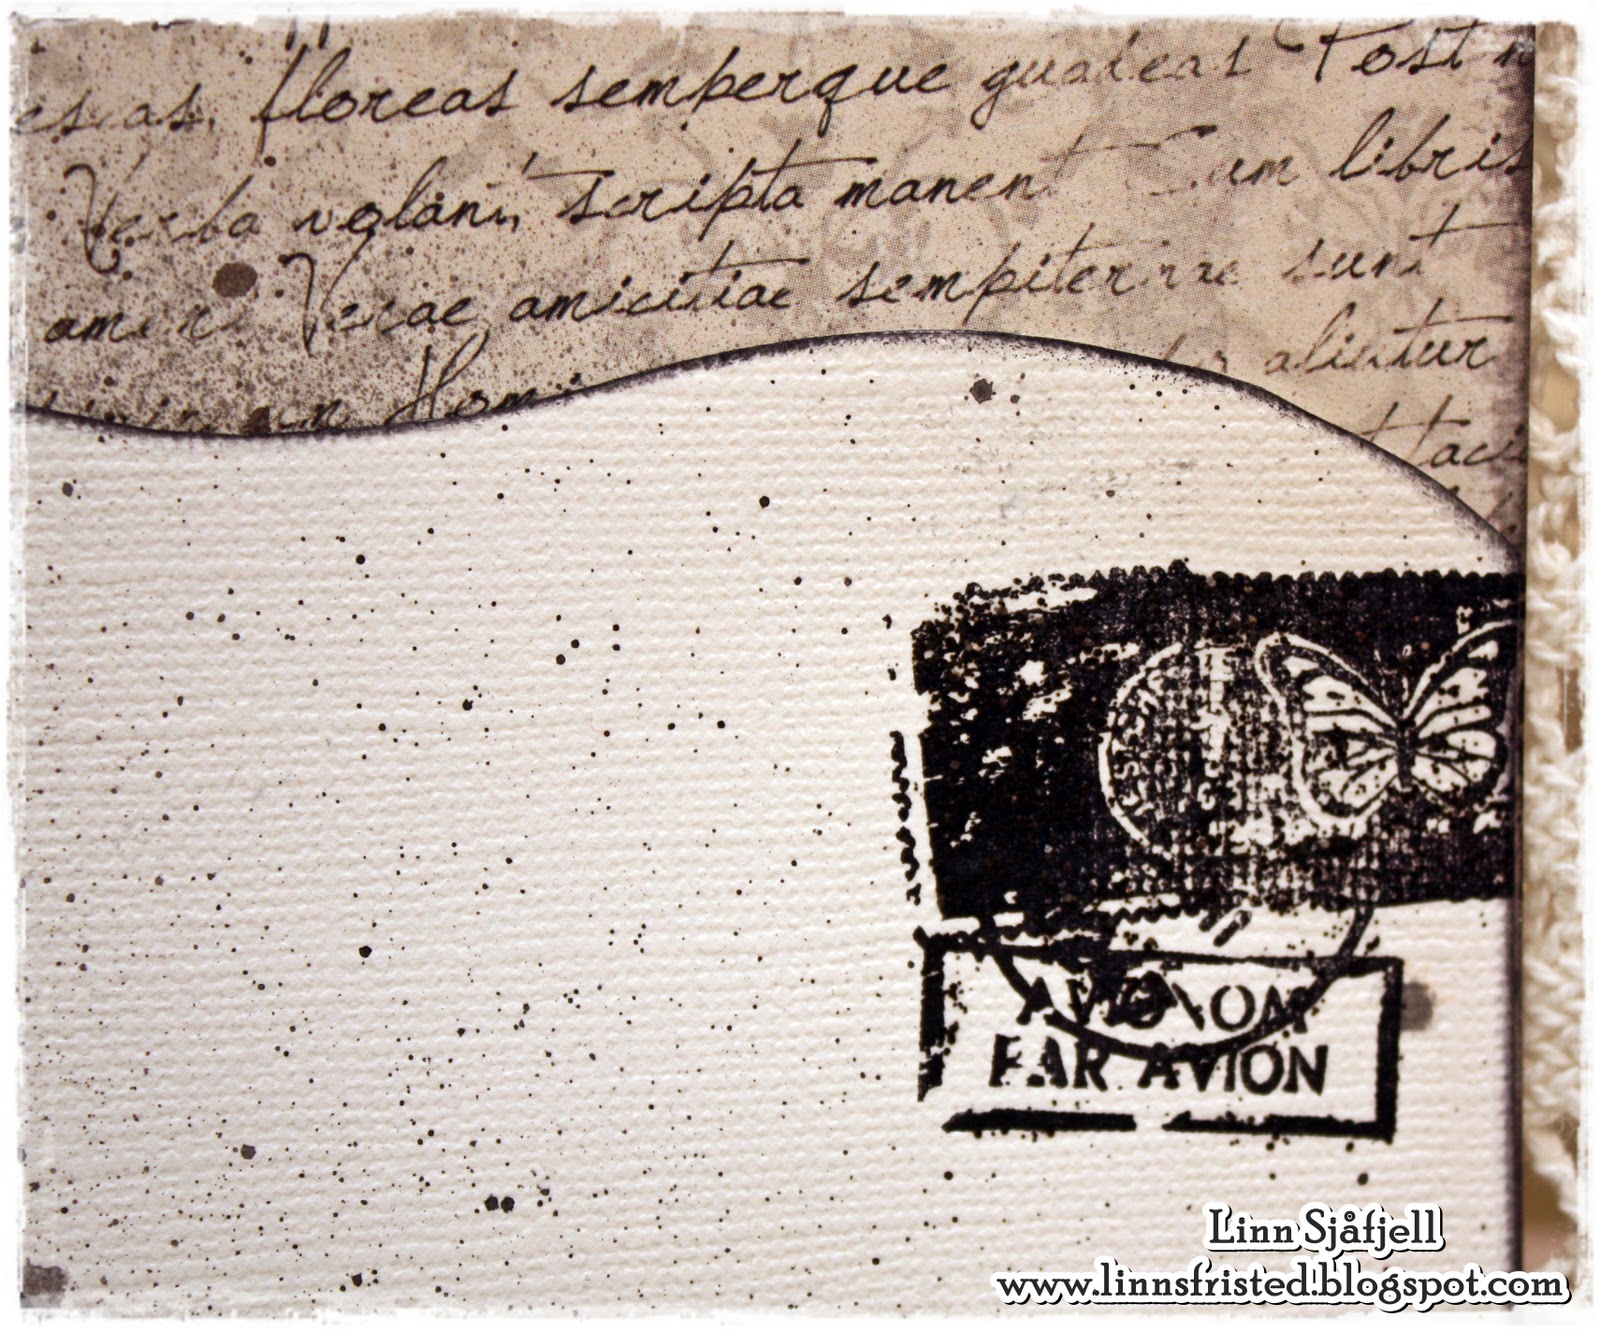 floreas semperque gaudeas Post
Verba volant, scripta manent Cum libris
Verae amicitiae sempiternae sunt
alicitur
Hom
PAR AVION
Linn Sjåfjell
www.linnsfristed.blogspot.com